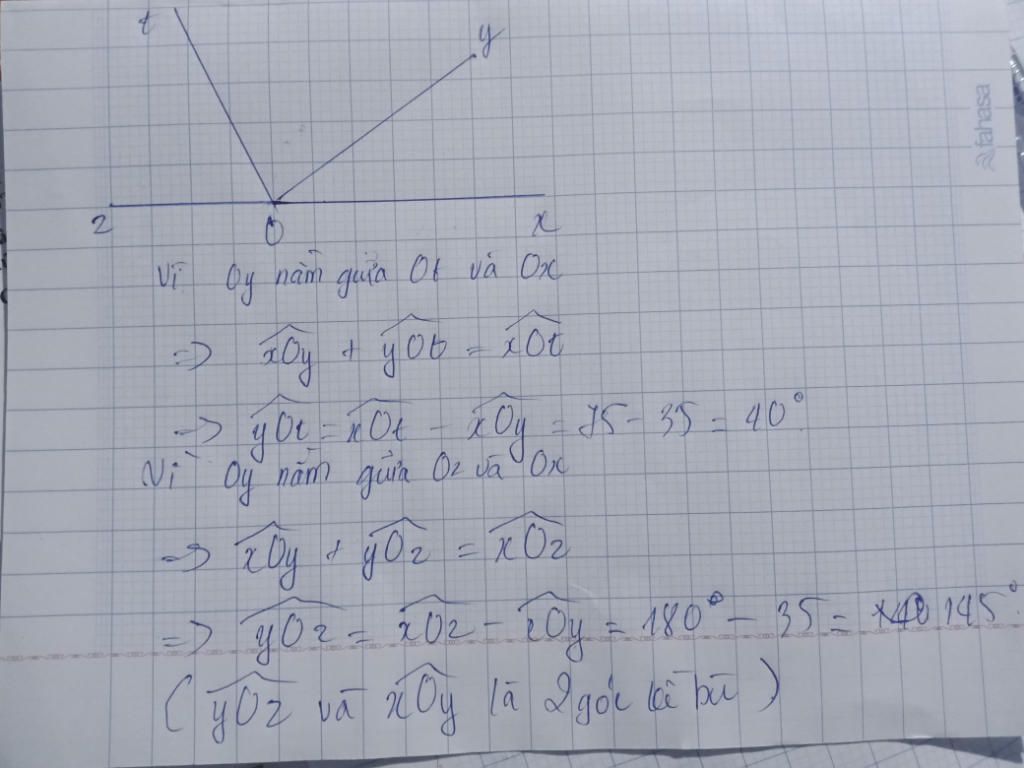 t
y
fahasa
z
O
x
Vì Oy nằm giữa Ot và Ox
=> xOy + yOt = xOt
=> yOt = xOt - xOy = 75 - 35 = 40°
Vì Oy nằm giữa Oz và Ox
=> xOy + yOz = xOz
=> yOz = xOz - xOy = 180° - 35 = 145°
(yOz và xOy là 2 góc kề bù)